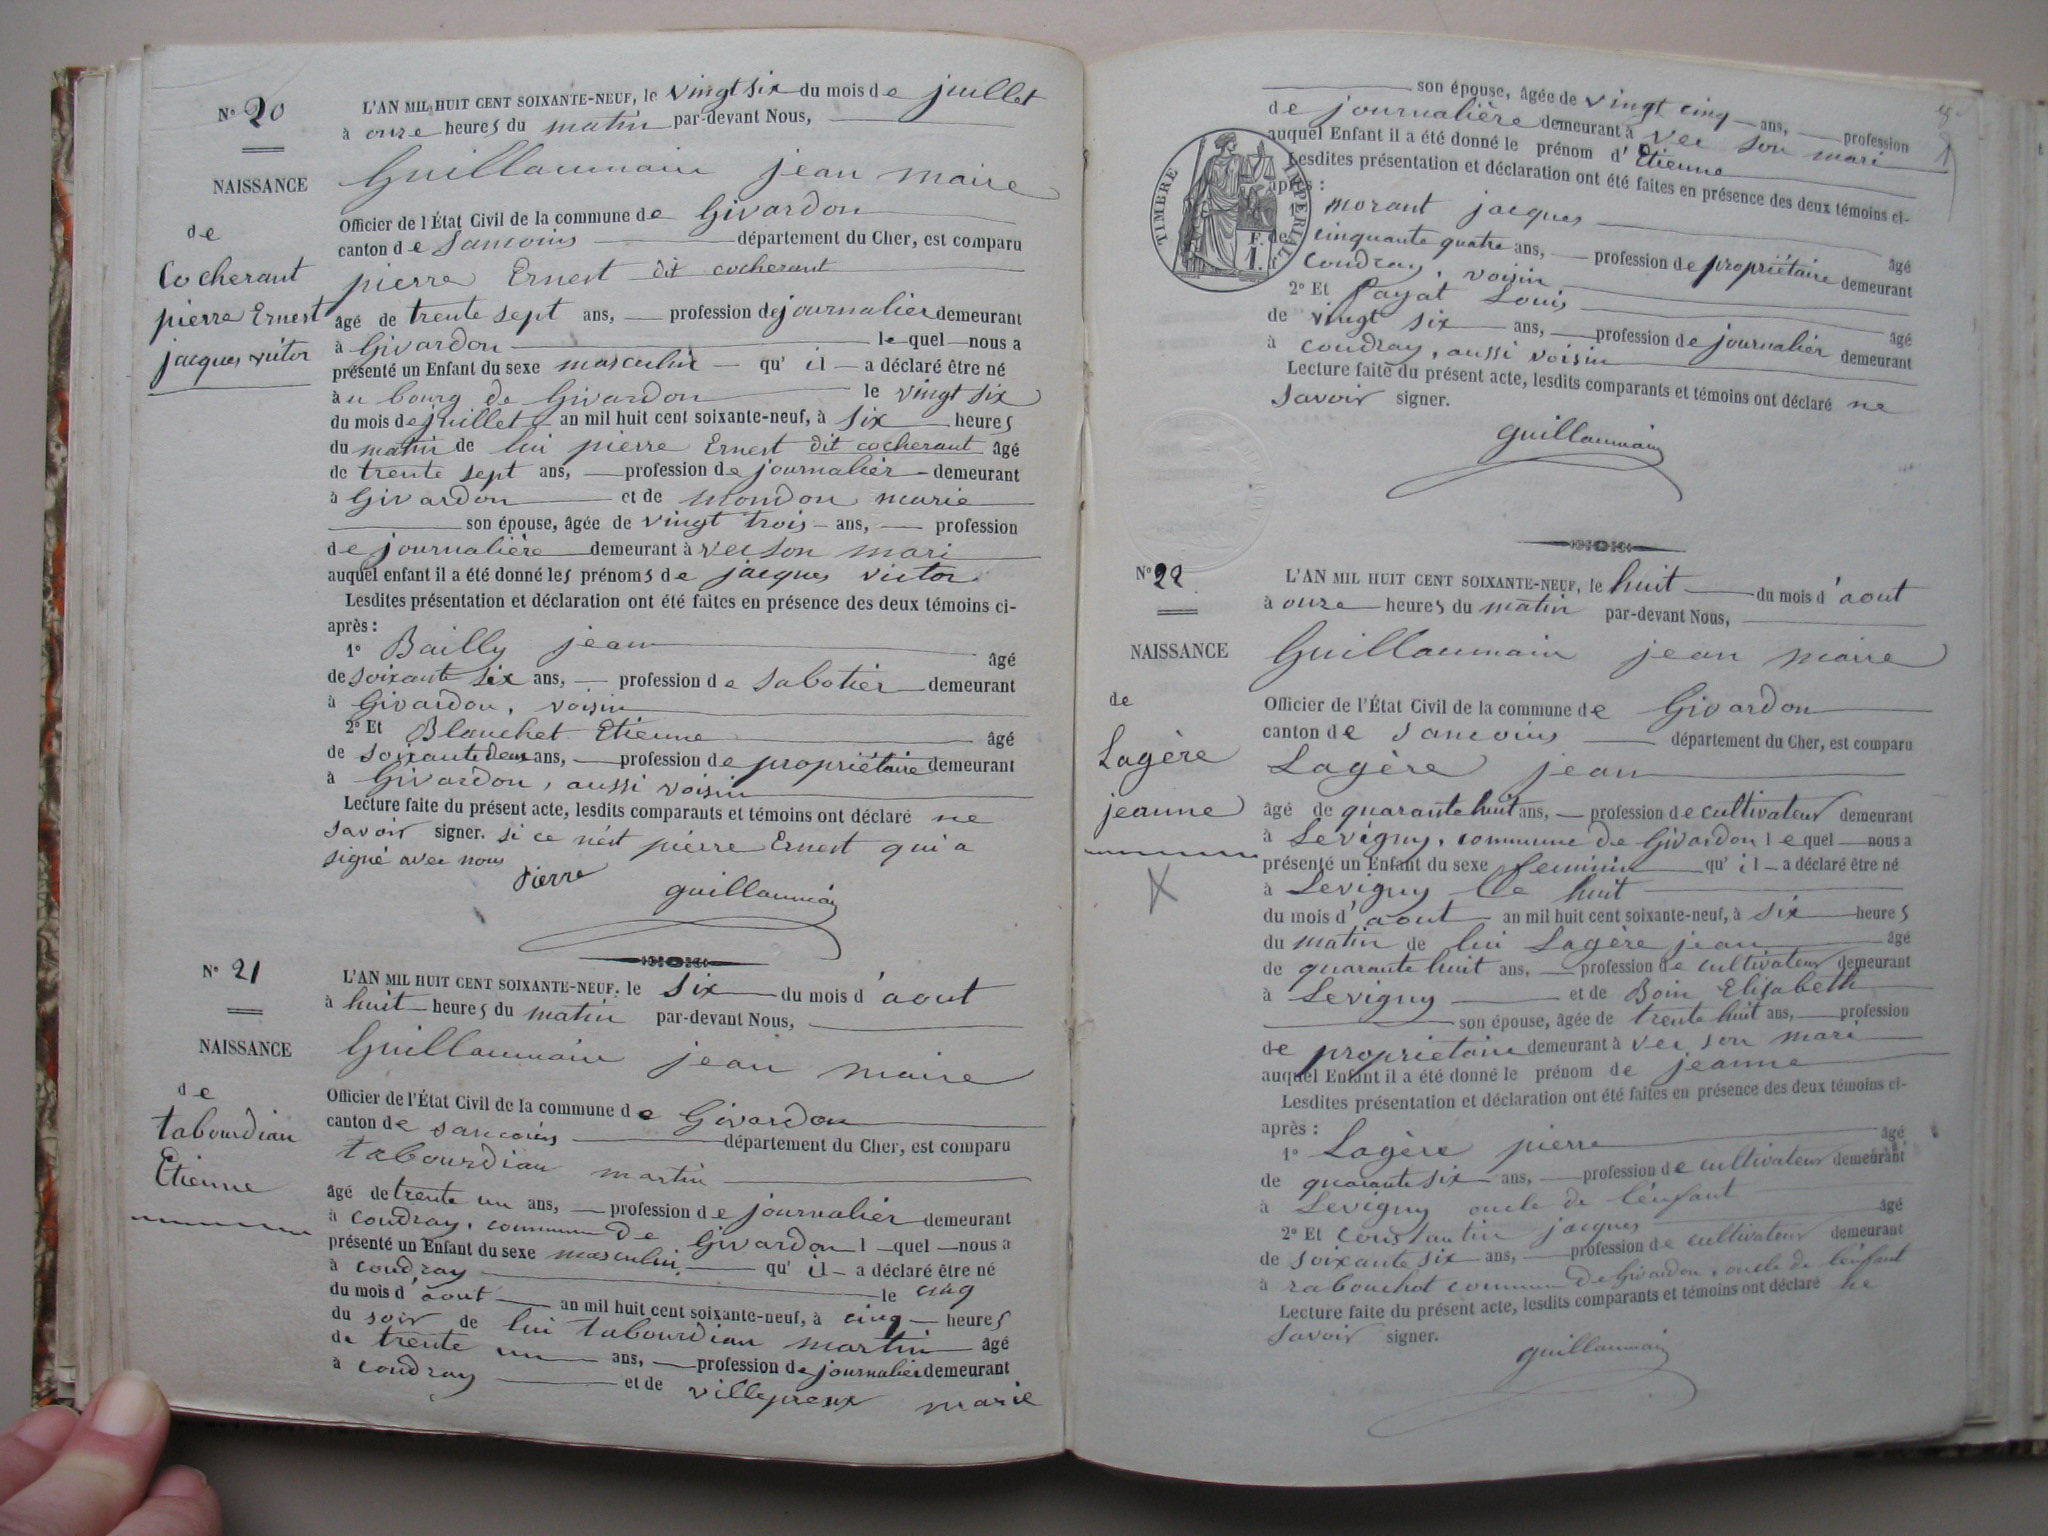 N° 20
NAISSANCE
de
Cocherant
pierre Ernest
jacques victor
L'AN MIL HUIT CENT SOIXANTE-NEUF, le vingt six du mois de juillet
à onze heures du matin par-devant Nous,
Guillaumain jean maire
Officier de l'État Civil de la commune de Givardon
canton de Sancoins département du Cher, est comparu
pierre Ernest dit cocherant
âgé de trente sept ans, profession de journalier demeurant
à Givardon lequel nous a
présenté un Enfant du sexe masculin qu'il a déclaré être né
à u bourg de Givardon le vingt six
du mois de juillet an mil huit cent soixante-neuf, à six heures
du matin de lui pierre Ernest dit cocherant âgé
de trente sept ans, profession de journalier demeurant
à Givardon et de mondon marie
son épouse, âgée de vingt trois ans, profession
de journalière demeurant à vec son mari
auquel enfant il a été donné les prénoms de jacques victor
Lesdites présentation et déclaration ont été faites en présence des deux témoins ci-
après :
1° Bailly jean âgé
de soixante six ans, profession de sabotier demeurant
à Givardon, voisin
2° Et Blanchet Etienne âgé
de soixante deux ans, profession de propriétaire demeurant
à Givardon, aussi voisin
Lecture faite du présent acte, lesdits comparants et témoins ont déclaré ne
savoir signer. si ce n'est pierre Ernest qui a
signé avec nous
Pierre guillaumain
N° 21
NAISSANCE
de
tabourdiau
Etienne
L'AN MIL HUIT CENT SOIXANTE-NEUF, le six du mois d'aout
à huit heures du matin par-devant Nous,
Guillaumain jean maire
Officier de l'État Civil de la commune de Givardon
canton de sancoins département du Cher, est comparu
tabourdiau martin
âgé de trente un ans, profession de journalier demeurant
à coudray, commune de Givardon l quel nous a
présenté un Enfant du sexe masculin qu'il a déclaré être né
à coudray le cinq
du mois d'aout an mil huit cent soixante-neuf, à cinq heures
du soir de lui tabourdiau martin âgé
de trente un ans, profession de journalier demeurant
à coudray et de villepreux marie
son épouse, âgée de vingt cinq ans, profession
de journalière demeurant à vec son mari
auquel Enfant il a été donné le prénom d'Etienne
Lesdites présentation et déclaration ont été faites en présence des deux témoins ci-
après :
TIMBRE IMPERIAL
F.
1.
1° morant jacques âgé
de cinquante quatre ans, profession de propriétaire demeurant
à coudray, voisin
2° Et Payat Louis âgé
de vingt six ans, profession de journalier demeurant
à coudray, aussi voisin
Lecture faite du présent acte, lesdits comparants et témoins ont déclaré ne
savoir signer.
guillaumain
N° 22
NAISSANCE
de
Lagère
jeanne
L'AN MIL HUIT CENT SOIXANTE-NEUF, le huit du mois d'aout
à onze heures du matin par-devant Nous,
Guillaumain jean maire
Officier de l'État Civil de la commune de Givardon
canton de Sancoins département du Cher, est comparu
Lagère jean
âgé de quarante huit ans, profession de cultivateur demeurant
à Levigny, commune de Givardon lequel nous a
présenté un Enfant du sexe feminin qu'il a déclaré être né
à Levigny le huit
du mois d'aout an mil huit cent soixante-neuf, à six heures
du matin de lui Lagère jean âgé
de quarante huit ans, profession de cultivateur demeurant
à Levigny et de Boin Elisabeth
son épouse, âgée de trente huit ans, profession
de propriétaire demeurant à vec son mari
auquel Enfant il a été donné le prénom de jeanne
Lesdites présentation et déclaration ont été faites en présence des deux témoins ci-
après :
1° Lagère pierre âgé
de quarante six ans, profession de cultivateur demeurant
à Levigny oncle de l'enfant
2° Et constantin jacques âgé
de soixante six ans, profession de cultivateur demeurant
à rabouchot commune de Givardon, oncle de l'enfant
Lecture faite du présent acte, lesdits comparants et témoins ont déclaré ne
savoir signer.
guillaumain